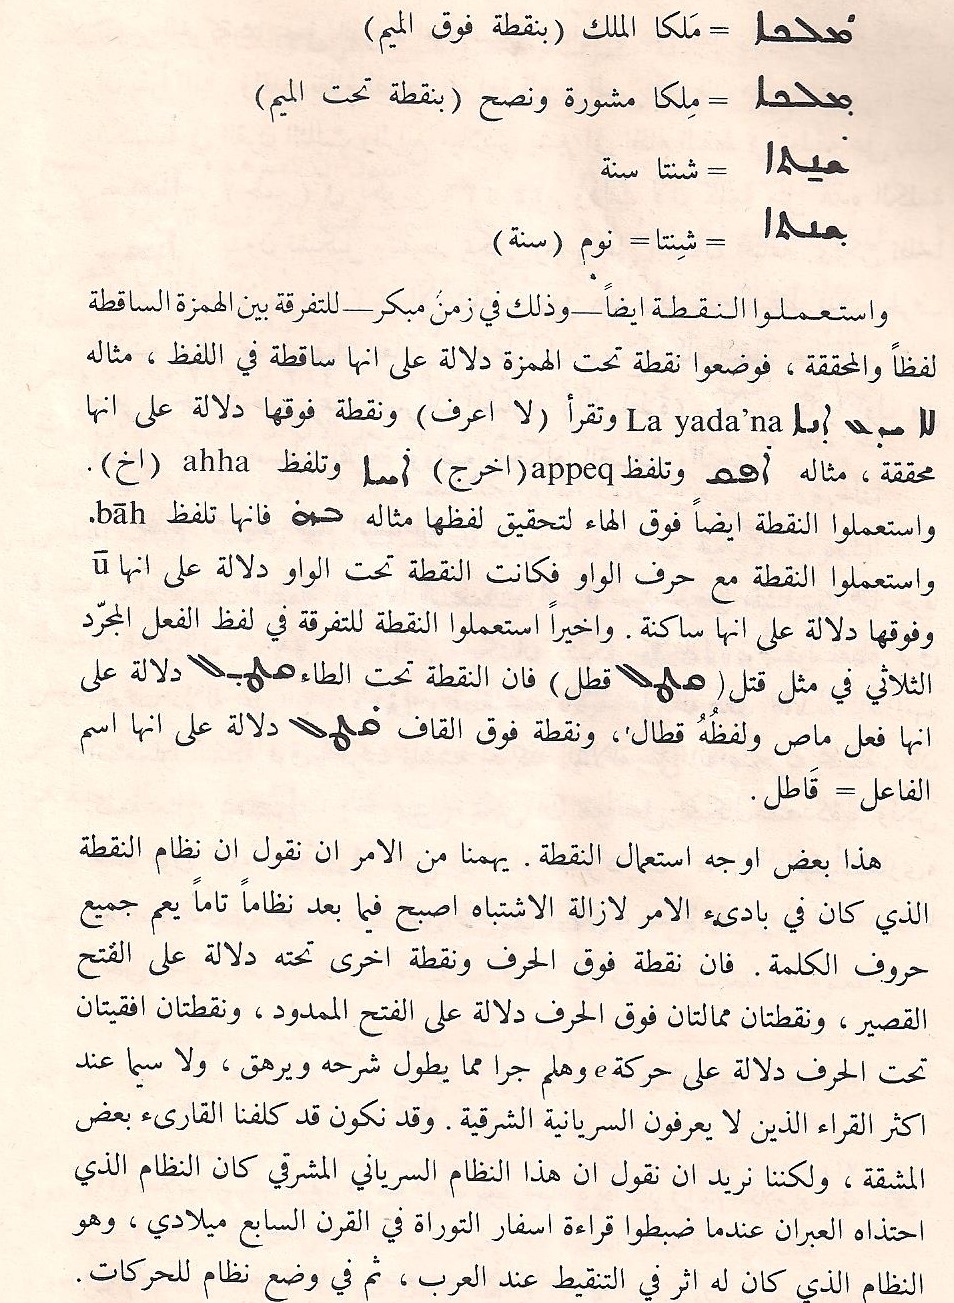 ܡܠܟܐ = مَلكا الملك (بنقطة فوق الميم)
ܡܠܟܐ = مِلكا مشورة ونصح (بنقطة تحت الميم)
ܫܢܬܐ = شَنتا سنة
ܫܢܬܐ = شِنتا= نوم (سنة)
واستعملوا النقطة ايضاً — وذلك في زمن مبكر — للتفرقة بين الهمزة الساقطة
لفظاً والمحققة ، فوضعوا نقطة تحت الهمزة دلالة على انها ساقطة في اللفظ ، مثاله
ܠܐ ܝܕܥ ܐܢܐ La yada’na وتقرأ (لا اعرف) ونقطة فوقها دلالة على انها
محققة ، مثاله ܐܦܩ وتلفظ appeq (اخرج) ܐܚܐ وتلفظ ahha (اخ) .
واستعملوا النقطة ايضاً فوق الهاء لتحقيق لفظها مثاله ܒܗ فانها تلفظ bāh.
واستعملوا النقطة مع حرف الواو فكانت النقطة تحت الواو دلالة على انها ū
وفوقها دلالة على انها ساكنة . واخيراً استعملوا النقطة للتفرقة في لفظ الفعل المجرّد
الثلاثي في مثل قتل (ܩܛܠ قطل) فان النقطة تحت الطاء ܩܛܠ دلالة على
انها فعل ماص ولفظُهُ قطال، ونقطة فوق القاف ܩܛܠ دلالة على انها اسم
الفاعل = قَاطل .
هذا بعض اوجه استعمال النقطة . يهمنا من الامر ان نقول ان نظام النقطة
الذي كان في بادىء الامر لازالة الاشتباه اصبح فيما بعد نظاماً تاماً يعم جميع
حروف الكلمة . فان نقطة فوق الحرف ونقطة اخرى تحته دلالة على الفتح
القصير ، ونقطتان ممالتان فوق الحرف دلالة على الفتح الممدود ، ونقطتان افقيتان
تحت الحرف دلالة على حركة e وهلم جرا مما يطول شرحه ويرهق ، ولا سيما عند
اكثر القراء الذين لا يعرفون السريانية الشرقية . وقد نكون قد كلفنا القارىء بعض
المشقة ، ولكننا نريد ان نقول ان هذا النظام السرياني المشرقي كان النظام الذي
احتذاه العبران عندما ضبطوا قراءة اسفار التوراة في القرن السابع ميلادي ، وهو
النظام الذي كان له اثر في التنقيط عند العرب ، ثم في وضع نظام للحركات .